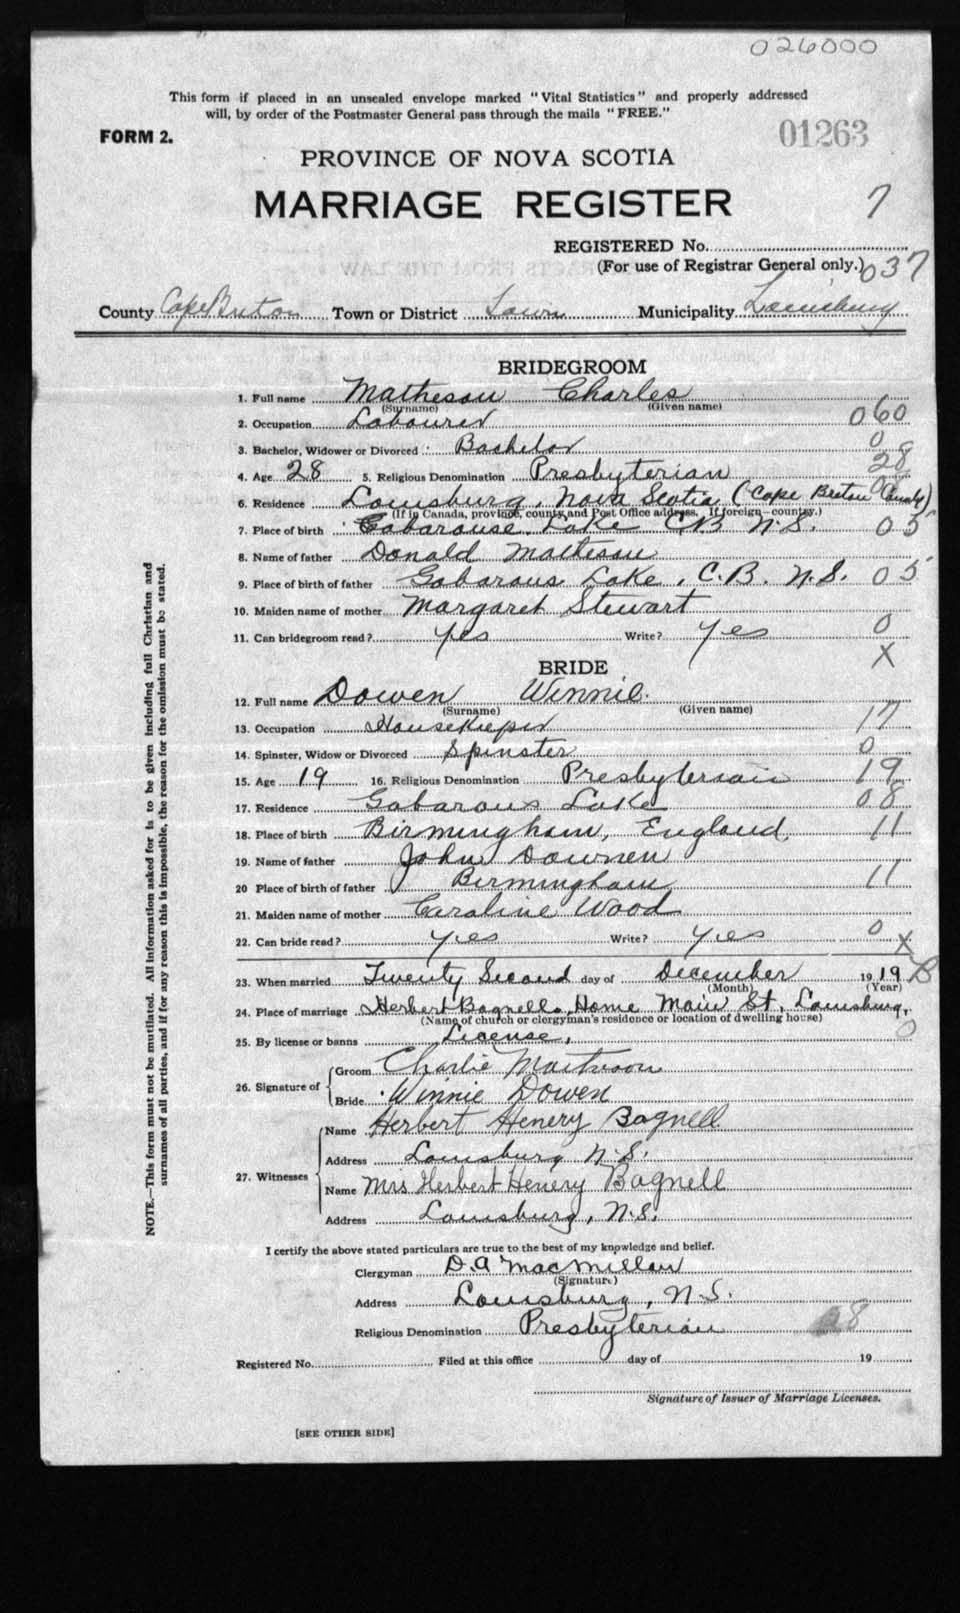 026000
This form if placed in an unsealed envelope marked "Vital Statistics" and properly addressed
will, by order of the Postmaster General pass through the mails "FREE."
FORM 2.
01263
PROVINCE OF NOVA SCOTIA
MARRIAGE REGISTER
7
REGISTERED No.
(For use of Registrar General only.) 037
County Cape Breton Town or District Town Municipality Louisburg
BRIDEGROOM
1. Full name Matheson Charles
(Surname) (Given name)
2. Occupation Labourer 060
3. Bachelor, Widower or Divorced Bachelor 0
4. Age 28 5. Religious Denomination Presbyterian 28
6. Residence Louisburg, Nova Scotia (Cape Breton County)
(If in Canada, province, county and Post Office address. If foreign—country.)
7. Place of birth Gabarouse Lake CB N.S. 05
8. Name of father Donald Matheson
9. Place of birth of father Gabarous Lake, C.B. N.S. 05
10. Maiden name of mother Margaret Stewart
11. Can bridegroom read? yes Write? yes 0
X
BRIDE
12. Full name Dowen Winnie.
(Surname) (Given name)
13. Occupation Housekeeper 17
14. Spinster, Widow or Divorced Spinster 0
15. Age 19 16. Religious Denomination Presbyterian 19
17. Residence Gabarous Lake 08
18. Place of birth Birmingham, England, 11
19. Name of father John Downen
20 Place of birth of father Birmingham 11
21. Maiden name of mother Caroline Wood
22. Can bride read? yes Write? yes 0
X
23. When married Twenty Second day of December 1919 B
(Month) (Year)
24. Place of marriage Herbert Bagnells Home Main St, Louisburg,
(Name of church or clergyman's residence or location of dwelling house)
0
25. By license or banns License,
26. Signature of
Groom Charlie Matheson
Bride Winnie Dowen
27. Witnesses
Name Herbert Henery Bagnell
Address Louisburg N.S.
Name Mrs Herbert Henery Bagnell
Address Louisburg, N.S.
I certify the above stated particulars are true to the best of my knowledge and belief.
Clergyman D.A MacMillan
(Signature)
Address Louisburg, N.S.
Religious Denomination Presbyterian 08
Registered No. Filed at this office day of 19
Signature of Issuer of Marriage Licenses.
[SEE OTHER SIDE]
NOTE.—This form must not be mutilated. All information asked for is to be given including full Christian and
surnames of all parties, and if for any reason this is impossible, the reason for the omission must be stated.